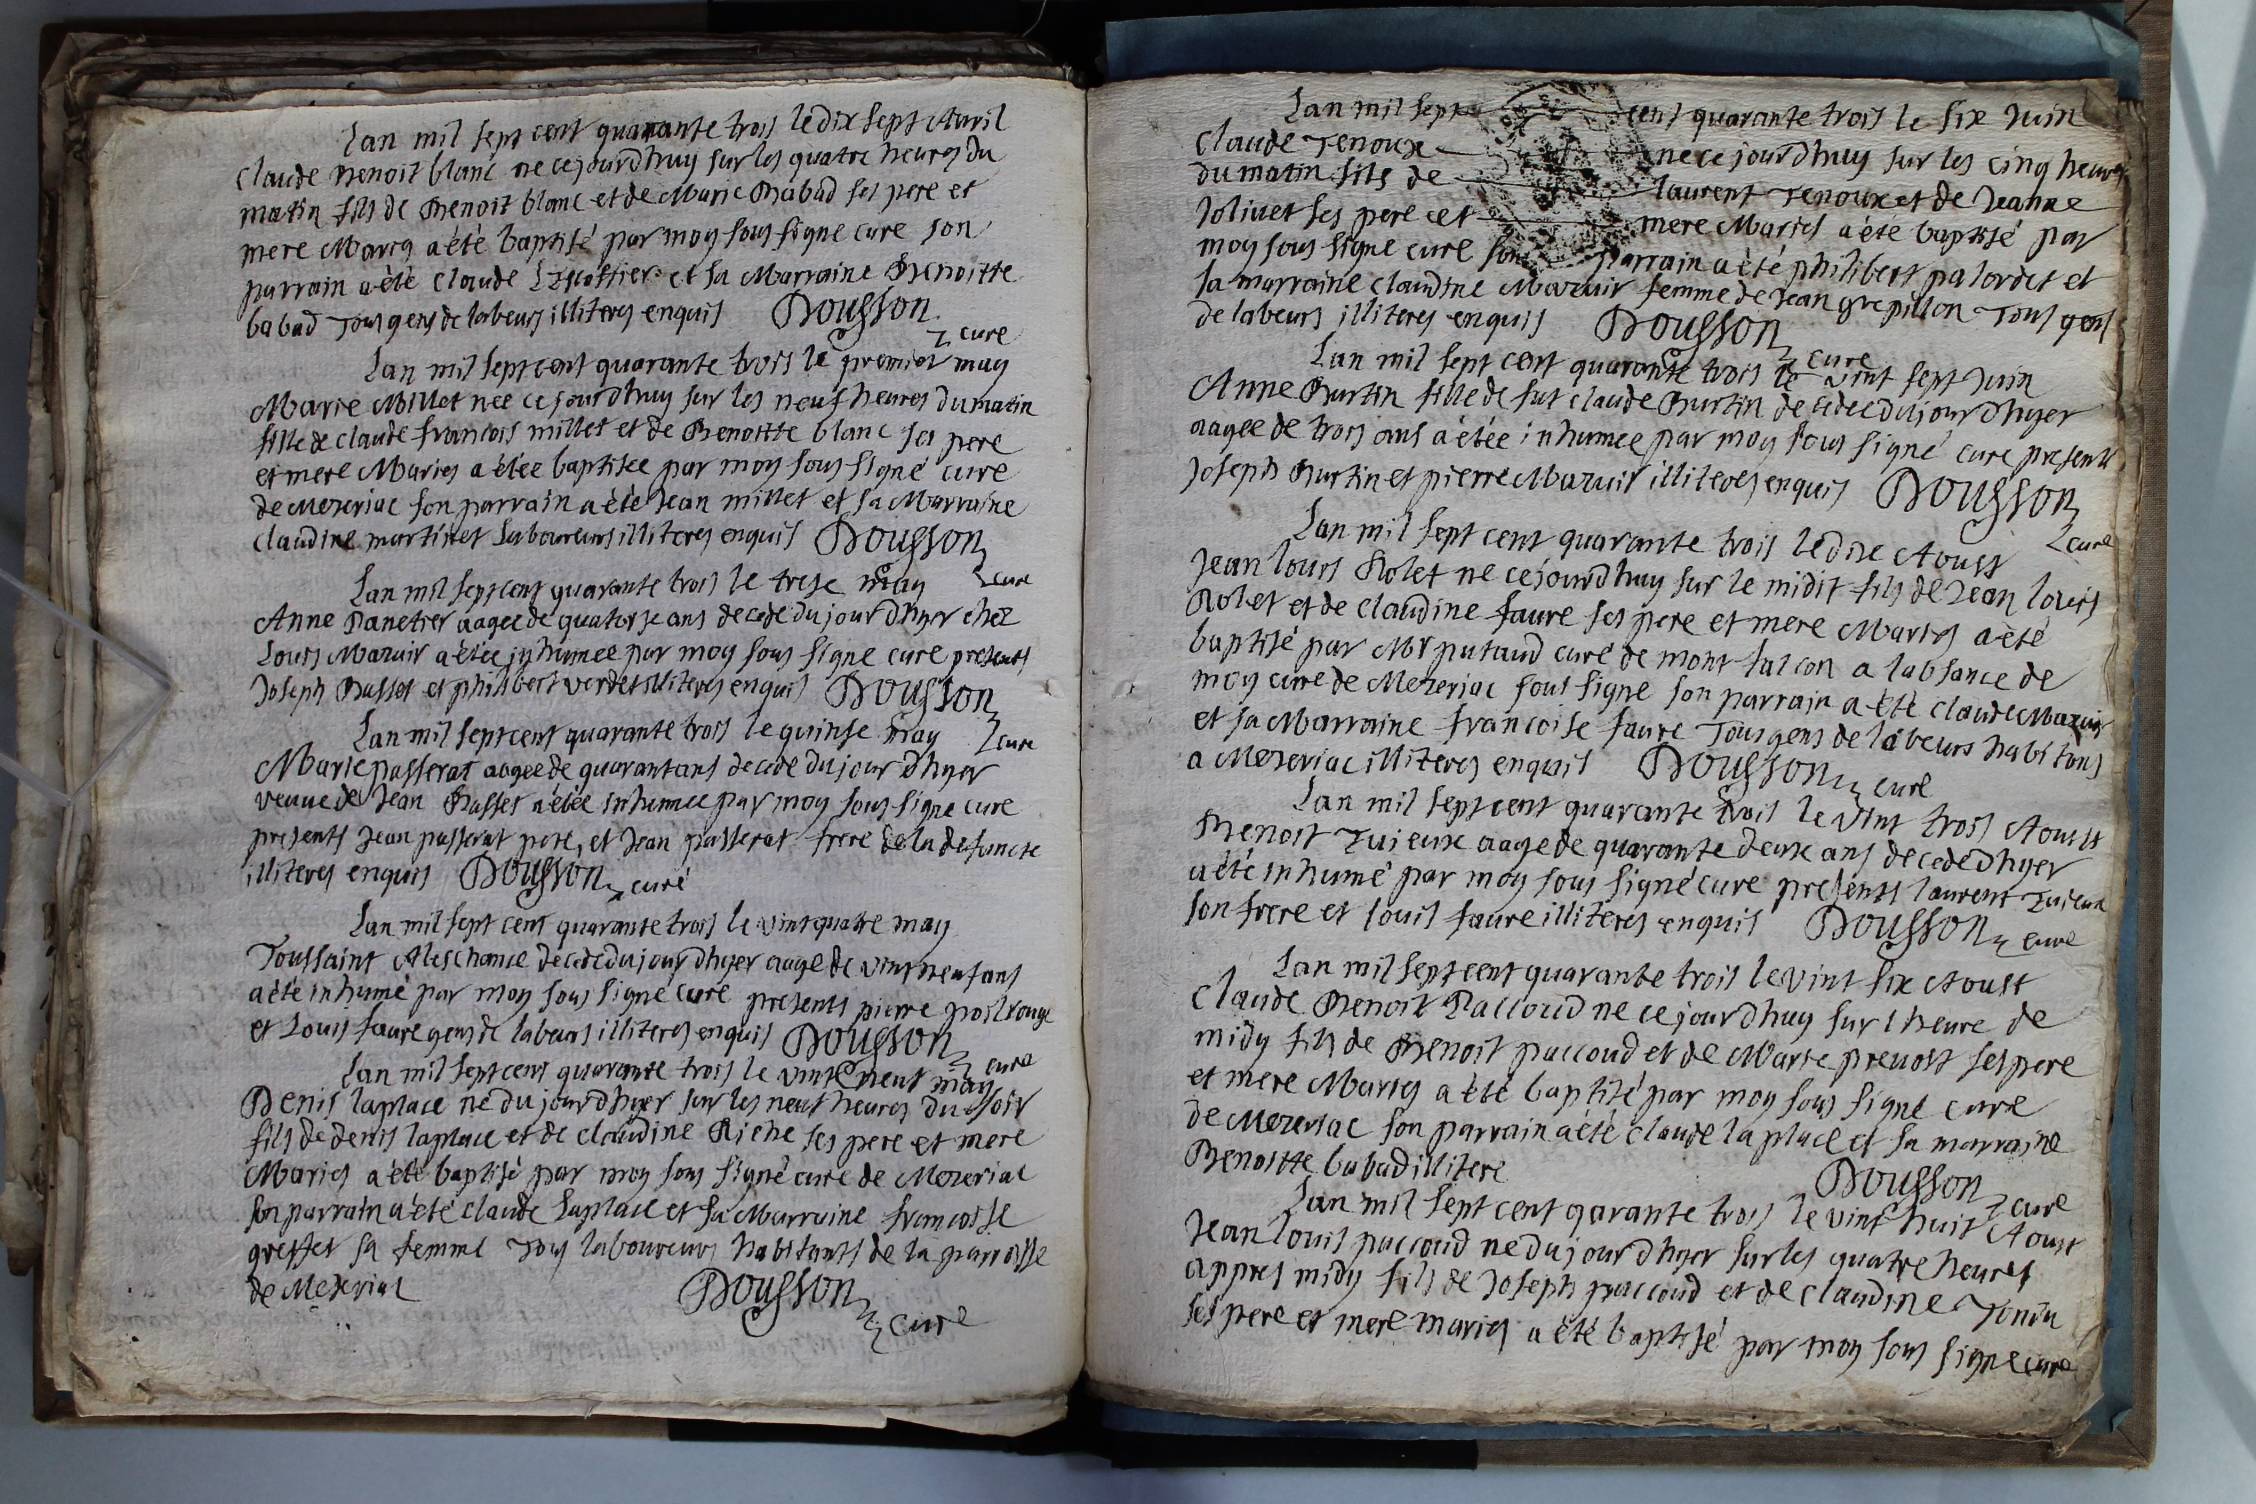 Lan mil sept cent quarante trois le dix sept Avril
Claude Benoit blanc ne ce jourdhuy sur les quatre heures du
matin fils de Benoit blanc et de Marie Babad ses pere et
mere Maries a été baptisé par moy sous signe cure son
parrain a été Claude et sa Marraine Benoitte
babad Tous gens de labeurs illiteres enquis Dousson
cure
Lan mil sept cent quarante trois le premier may
Marie Millet nee ce jourdhuy sur les neuf heures du matin
fille de claude francois millet et de Benoitte blanc ses pere
et mere Maries a étée baptisee par moy sous signé cure
de Mezeriac son parrain a été Jean millet et sa Marraine
claudine martin et laboureurs illiteres enquis Dousson
cure
Lan mil sept cent quarante trois le trese may
Anne Panetier aagee de quatorse ans decede du jour dhyer chez
Louis Mazuir a étée inhumee par moy sous signe cure presents
Joseph Busset et philibert verdet illiteres enquis Dousson
cure
Lan mil sept cent quarante trois le quinse may
Marie passerat aagee de quarant ans decede du jour dhyer
veuve de Jean Basset a étée inhumee par moy sous signe cure
presents Jean passerat pere, et Jean passerat frere de la defuncte
illiteres enquis Dousson curé
Lan mil sept cent quarante trois le vint quatre may
Toussaint Aleschance decede du jour dhyer aagé de vint neuf ans
a été inhumé par moy sous signé curé presents pierre poilrouge
et Louis faure gens de labeurs illiteres enquis Dousson
cure
Lan mil sept cent quarante trois le vint neuf may
Denis laplace né du jour dhyer sur les neuf heures du soir
fils de denis laplace et de claudine Riche ses pere et mere
Maries a été baptisé par moy sous signé curé de Mezeriac
son parrain a été claude laplace et sa Marraine francoise
greffet sa femme Tous laboureurs habitants de la parroisse
de Mezeriac Dousson
cure
Lan mil sept cent quarante trois le six Juin
Claude Tenoux ne ce jourdhuy sur les cinq heures
du matin fils de laurent Tenoux et de Jeanne
Jolivet ses pere et mere Maries a été baptisé par
moy sous signe cure son parrain a été philibert palordet et
la marraine claudine Mazuir femme de Jean grepillon Tous gens
de labeurs illiteres enquis Dousson
cure
Lan mil sept cent quarante trois le vint sept Juin
Anne Burtin fille de fut claude Burtin decedee du jour dhyer
aagee de trois ans a étée inhumee par moy sous signé cure presents
Joseph Burtin et pierre Mazuir illiteres enquis Dousson
cure
Lan mil sept cent quarante trois le dixe Aoust
Jean louis Rolet ne ce jourdhuy sur le midit fils de Jean louis
Rolet et de claudine faure ses pere et mere Maries a été
baptisé par Mr putaud curé de mont falcon a labsance de
moy cure de Mezeriac sous signe son parrain a été claude Mazuir
et sa Marraine francoise faure Tous gens de labeurs habitans
a Mezeriac illiteres enquis Dousson cure
Lan mil sept cent quarante trois le vint trois Aoust
Benoit Tuieux aage de quarante deux ans decede dhyer
a été inhumé par moy sous signé cure presents laurent Tuieux
son frere et louis faure illiteres enquis Dousson cure
Lan mil sept cent quarante trois le vint six Aoust
Claude Benoit Paccoud ne ce jourdhuy sur lheure de
midy fils de Benoit paccoud et de Marie prevost ses pere
et mere Maries a été baptisé par moy sous signé cure
de Mezeriac son parrain a été claude laplace et sa marraine
Benoitte babad illitere Dousson
cure
Lan mil sept cent qarante trois le vint huit Aoust
Jean louis paccoud né du jour dhyer sur les quatre heures
appres midy fils de Joseph paccoud et de claudine Tondu
ses pere et mere maries a été baptisé par moy sous signe cure